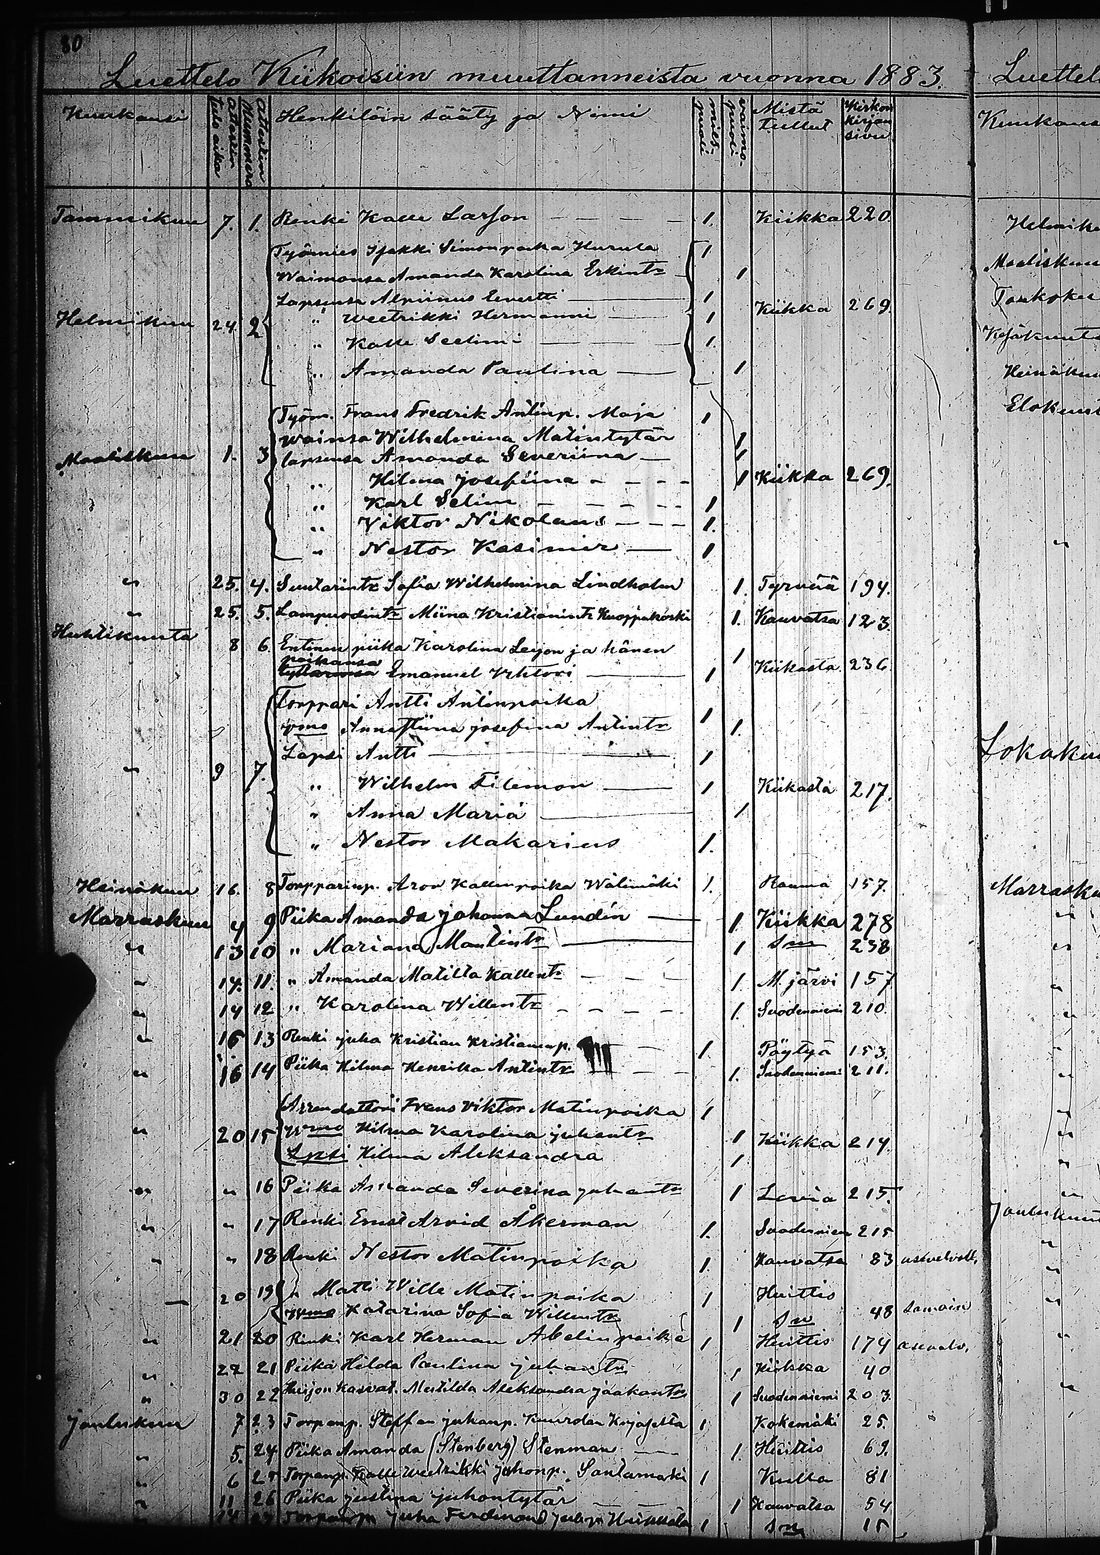 80
Luettelo Kiikoisiin muuttanneista vuonna 1883.
Kuukausi attestin tulo aika attestin Nummero Henkilöin sääty ja Nimi mies- puoli vaimo- puoli Mistä tullut Kirkon kirjan sivu
Tammikuu 7. 1. Renki Kalle Larson 1. Kiikka 220
Työmies Isakki Simonpoika Hurula 1
Waimonsa Amanda Karolina Erkintr 1
Lapsensa Alpiinus Evertti 1
Helmikuu 24 2 " Weetrikki Hermanni 1 Kiikka 269
" Kalle Seelimi 1.
" Amanda Paulina 1
Työm. Frans Fredrik Antinp. Maja 1
Waimsa Wilhelmina Matintytär 1
Maaliskuu 1. 3 lapsensa Amanda Severiina 1
" Hilma Josefiina 1 Kiikka 269.
" Karl Selim 1
" Viktor Nikolaus 1.
" Nestor Kasimir 1
" 25. 4. Suutarintr Sofia Wilhelmina Lindholm 1. Tyrvää 194.
" 25. 5. Lampuodintr Miina Kristianintr Kuoppakoski 1. Kauvatsa 123.
Huhtikuuta 8 6 Entinen piika Karolina Leijon ja hänen 1
poikansa Emanuel Vihtori 1 Kiikasta 236
Torppari Antti Antinpoika 1
vmo Annastiina Josefina Antintr 1.
Lapsi Antti 1
" 9 7. " Wilhelm Filemon 1 Kiikasta 217.
" Anna Maria 1
" Nestor Makarius 1.
Heinäkuu 16. 8 Torpparinp. Aron Kallenpoika Wälimäki 1. Rauma 157.
Marraskuu 4 9 Piika Amanda Johanna Lundin 1. Kiikka 278
" 13 10 " Mariana Martintr 1 Sm 238
" 14. 11. " Amanda Matilta Kallentr 1. M. järvi 157
" 14 12 " Karolina Willentr 1. Suodenniemi 210.
" 16 13 Renki Juha Kristian Kristianinp. 1. Pöytyä 153.
" 16 14 Piika Hilma Henrika Antintr 1. Suodenniemi 211.
Arrendattori Frans Viktor Matinpoika 1
" 20 15 Wmo Hilma Karolina Juhantr 1 Kiikka 214.
Lpsi Hilma Aleksandra 1
" " 16 Piika Amanda Severina Juhantr 1 Lavia 215.
" " 17 Renki Ernst Arvid Åkerman 1. Suodenniemi 215
" " 18 Renki Nestor Matinpoika 1. Kauvatsa 83 asevelvoll.
20 19 " Matti Wille Matinpoika 1 Huittis
Wmo Katarina Sofia Willentr 1 Sm 48 Samoin
" 21 20 Renki Karl Herman Abelinpoika 1 Huittis 174 asevelv.
" 27 21 Piika Hilda Paulina Juhantr 1 Kiikka 40
" 30 22 Matilda Aleksandra Jaakontr 1 Suodenniemi 203.
Joulukuu 7 23 Torpanp. Steffan Juhanp. 1 Kokemäki 25.
" 5. 24 Piika Amanda (Stenberg) Stenman 1. Huittis 69.
" 6 25 Torpanp. Kalle Weetrikki Juhonp. Santamäki 1 Kulla 81
" 11 26 Piika Justina Juhontytär 1 Kauvatsa 54
" 14 27 Torpanp. Juha Ferdinand Juhonp. Heikkilä 1 Sm 15
Luettel
Kuukaus
Helmiku
Maaliskuu
Toukoku
Kesäkuuta
Heinäkuu
Elokuu
"
Lokakuu
Marrasku
"
Joulukuu
"